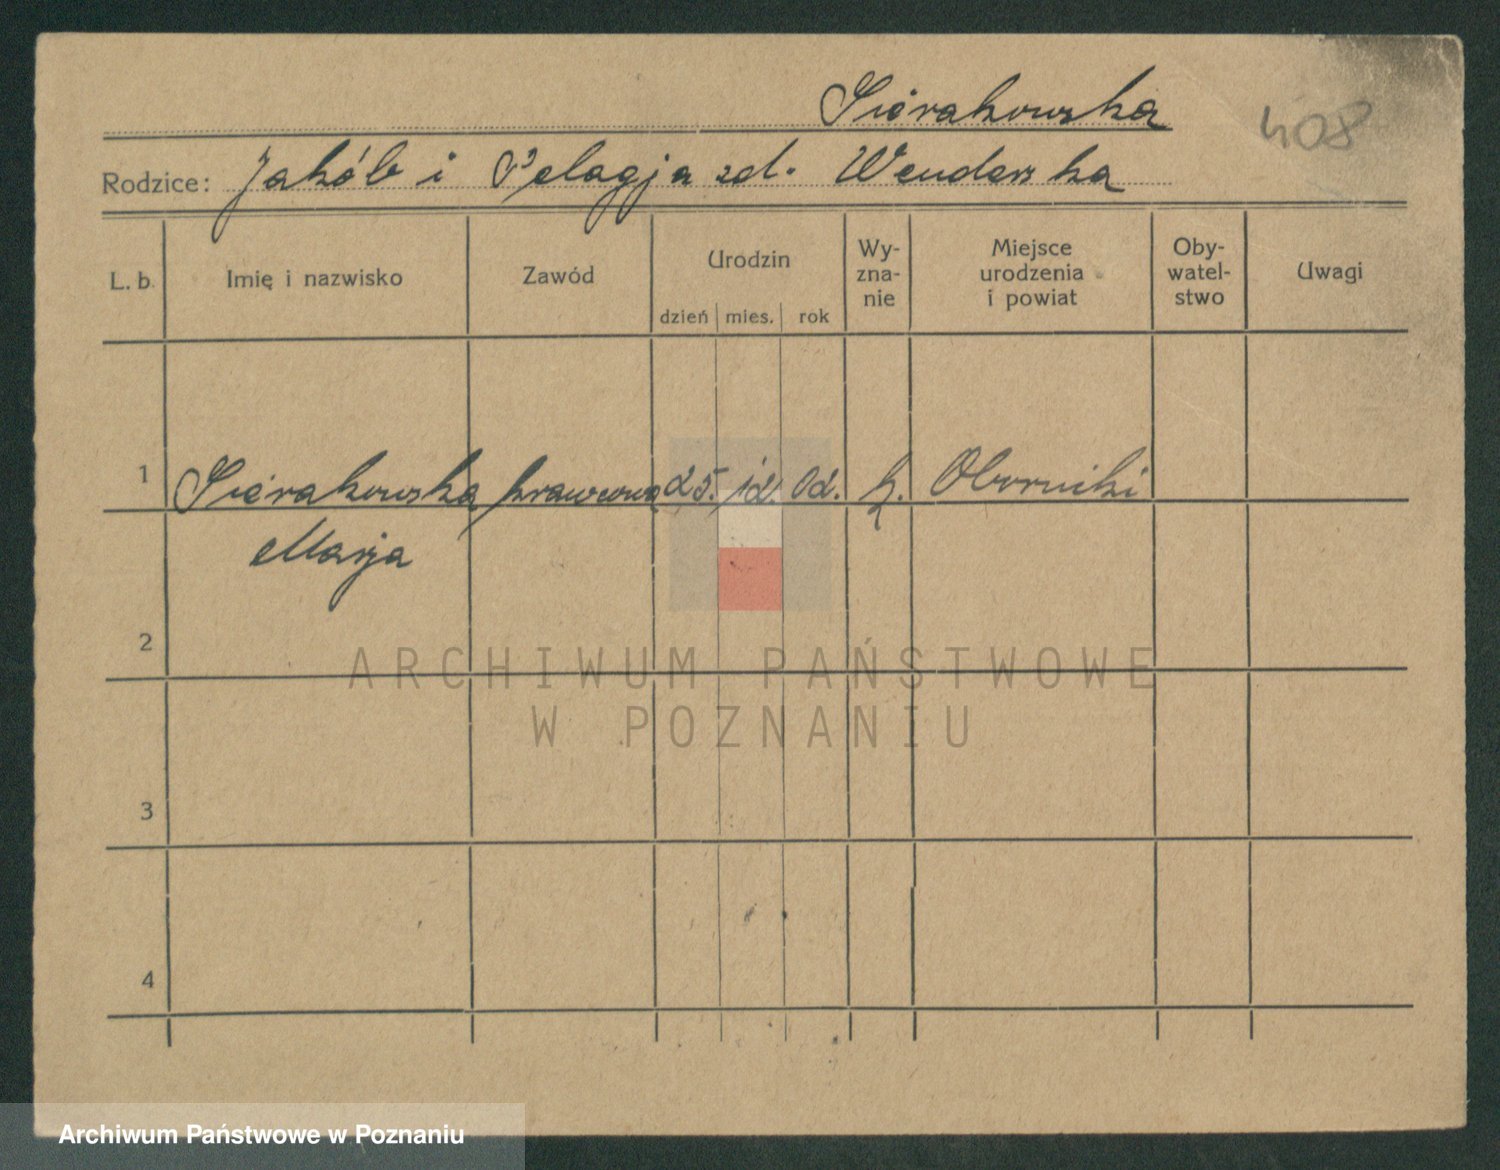 Sierakowska
408
Rodzice: Jakób i Pelagja zd. Wenderska
L. b. Imię i nazwisko Zawód Urodzin dzień mies. rok Wy-zna-nie Miejsce urodzenia i powiat Oby-watel-stwo Uwagi
1 Sierakowska krawcowa 25. 12. 02. k. Oborniki
Marja
2
ARCHIWUM PAŃSTWOWE
W POZNANIU
3
4
Archiwum Państwowe w Poznaniu